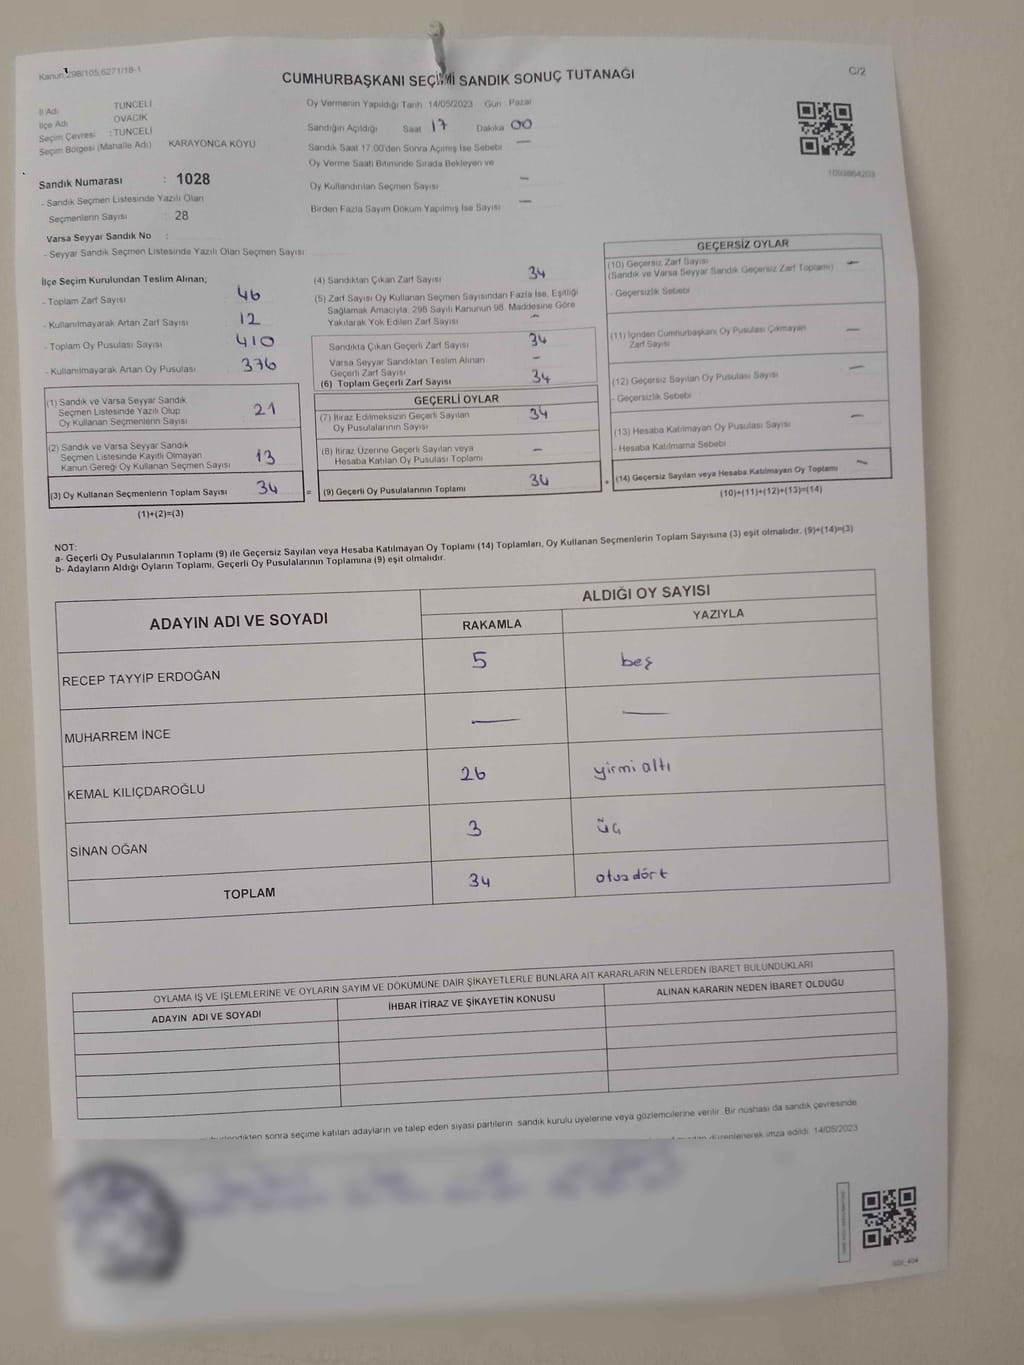 Kanun:298/105;6271/18-1
C/2
CUMHURBAŞKANI SEÇİMİ SANDIK SONUÇ TUTANAĞI
İl Adı TUNCELİ
İlçe Adı OVACIK
Seçim Çevresi : TUNCELİ
Seçim Bölgesi (Mahalle Adı) KARAYONCA KÖYÜ
Oy Vermenin Yapıldığı Tarih 14/05/2023 Gün Pazar
Sandığın Açıldığı Saat 17 Dakika 00
Sandık Saat 17:00'den Sonra Açımış İse Sebebi —
Oy Verme Saati Bitiminde Sırada Bekleyen ve
Oy Kullandırılan Seçmen Sayısı —
Birden Fazla Sayım Döküm Yapılmış İse Sayısı —
1093864203
Sandık Numarası : 1028
- Sandık Seçmen Listesinde Yazılı Olan
Seçmenlerin Sayısı 28
Varsa Seyyar Sandık No :
- Seyyar Sandık Seçmen Listesinde Yazılı Olan Seçmen Sayısı
İlçe Seçim Kurulundan Teslim Alınan;
- Toplam Zarf Sayısı 46
- Kullanılmayarak Artan Zarf Sayısı 12
- Toplam Oy Pusulası Sayısı 410
- Kullanılmayarak Artan Oy Pusulası 376
(1) Sandık ve Varsa Seyyar Sandık
Seçmen Listesinde Yazılı Olup
Oy Kullanan Seçmenlerin Sayısı 21
(2) Sandık ve Varsa Seyyar Sandık
Seçmen Listesinde Kayıtlı Olmayan
Kanun Gereği Oy Kullanan Seçmen Sayısı 13
(3) Oy Kullanan Seçmenlerin Toplam Sayısı 34
(1)+(2)=(3)
(4) Sandıktan Çıkan Zarf Sayısı 34
(5) Zarf Sayısı Oy Kullanan Seçmen Sayısından Fazla İse, Eşitliği
Sağlamak Amacıyla, 298 Sayılı Kanunun 98. Maddesine Göre
Yakılarak Yok Edilen Zarf Sayısı —
Sandıkta Çıkan Geçerli Zarf Sayısı 34
Varsa Seyyar Sandıktan Teslim Alınan
Geçerli Zarf Sayısı —
(6) Toplam Geçerli Zarf Sayısı 34
GEÇERLİ OYLAR
(7) İtiraz Edilmeksizin Geçerli Sayılan
Oy Pusulalarının Sayısı 34
(8) İtiraz Üzerine Geçerli Sayılan veya
Hesaba Katılan Oy Pusulası Toplamı —
= (9) Geçerli Oy Pusulalarının Toplamı 34
GEÇERSİZ OYLAR
(10) Geçersiz Zarf Sayısı —
(Sandık ve Varsa Seyyar Sandık Geçersiz Zarf Toplamı)
- Geçersizlik Sebebi
(11) İçinden Cumhurbaşkanı Oy Pusulası Çıkmayan
Zarf Sayısı —
(12) Geçersiz Sayılan Oy Pusulası Sayısı —
- Geçersizlik Sebebi
(13) Hesaba Katılmayan Oy Pusulası Sayısı —
- Hesaba Katılmama Sebebi
+ (14) Geçersiz Sayılan veya Hesaba Katılmayan Oy Toplamı —
(10)+(11)+(12)+(13)=(14)
NOT:
a- Geçerli Oy Pusulalarının Toplamı (9) ile Geçersiz Sayılan veya Hesaba Katılmayan Oy Toplamı (14) Toplamları, Oy Kullanan Seçmenlerin Toplam Sayısına (3) eşit olmalıdır. (9)+(14)=(3)
b- Adayların Aldığı Oyların Toplamı, Geçerli Oy Pusulalarının Toplamına (9) eşit olmalıdır.
ADAYIN ADI VE SOYADI
ALDIĞI OY SAYISI
RAKAMLA YAZIYLA
RECEP TAYYİP ERDOĞAN 5 beş
MUHARREM İNCE — —
KEMAL KILIÇDAROĞLU 26 yirmi altı
SİNAN OĞAN 3 üç
TOPLAM 34 otuzdört
OYLAMA İŞ VE İŞLEMLERİNE VE OYLARIN SAYIM VE DÖKÜMÜNE DAİR ŞİKAYETLERLE BUNLARA AİT KARARLARIN NELERDEN İBARET BULUNDUKLARI
ADAYIN ADI VE SOYADI İHBAR İTİRAZ VE ŞİKAYETİN KONUSU ALINAN KARARIN NEDEN İBARET OLDUĞU
sonra seçime katılan adayların ve talep eden siyasi partilerin sandık kurulu üyelerine veya gözlemcilerine verilir. Bir nüshası da sandık çevresinde
düzenlenerek imza edildi. 14/05/2023